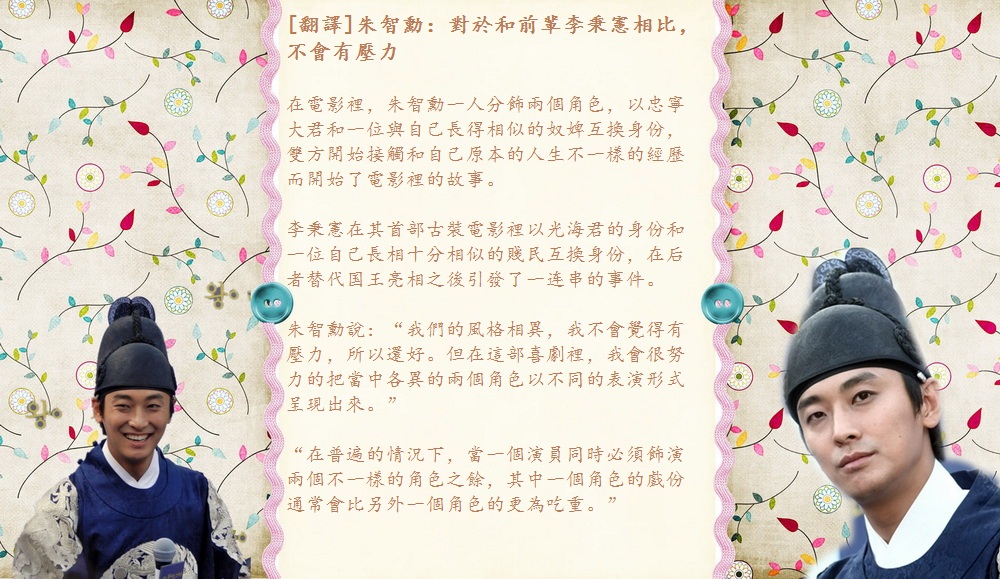 [翻譯]朱智勳：對於和前輩李秉憲相比，
不會有壓力
在電影裡，朱智勳一人分飾兩個角色，以忠寧
大君和一位與自己長得相似的奴婢互換身份，
雙方開始接觸和自己原本的人生不一樣的經歷
而開始了電影裡的故事。
李秉憲在其首部古裝電影裡以光海君的身份和
一位自己長相十分相似的賤民互換身份，在后
者替代国王亮相之後引發了一连串的事件。
朱智勳說：“我們的風格相異，我不會覺得有
壓力，所以還好。但在這部喜劇裡，我會很努
力的把當中各異的兩個角色以不同的表演形式
呈現出來。”
“在普遍的情況下，當一個演員同時必須飾演
兩個不一樣的角色之餘，其中一個角色的戲份
通常會比另外一個角色的更為吃重。”